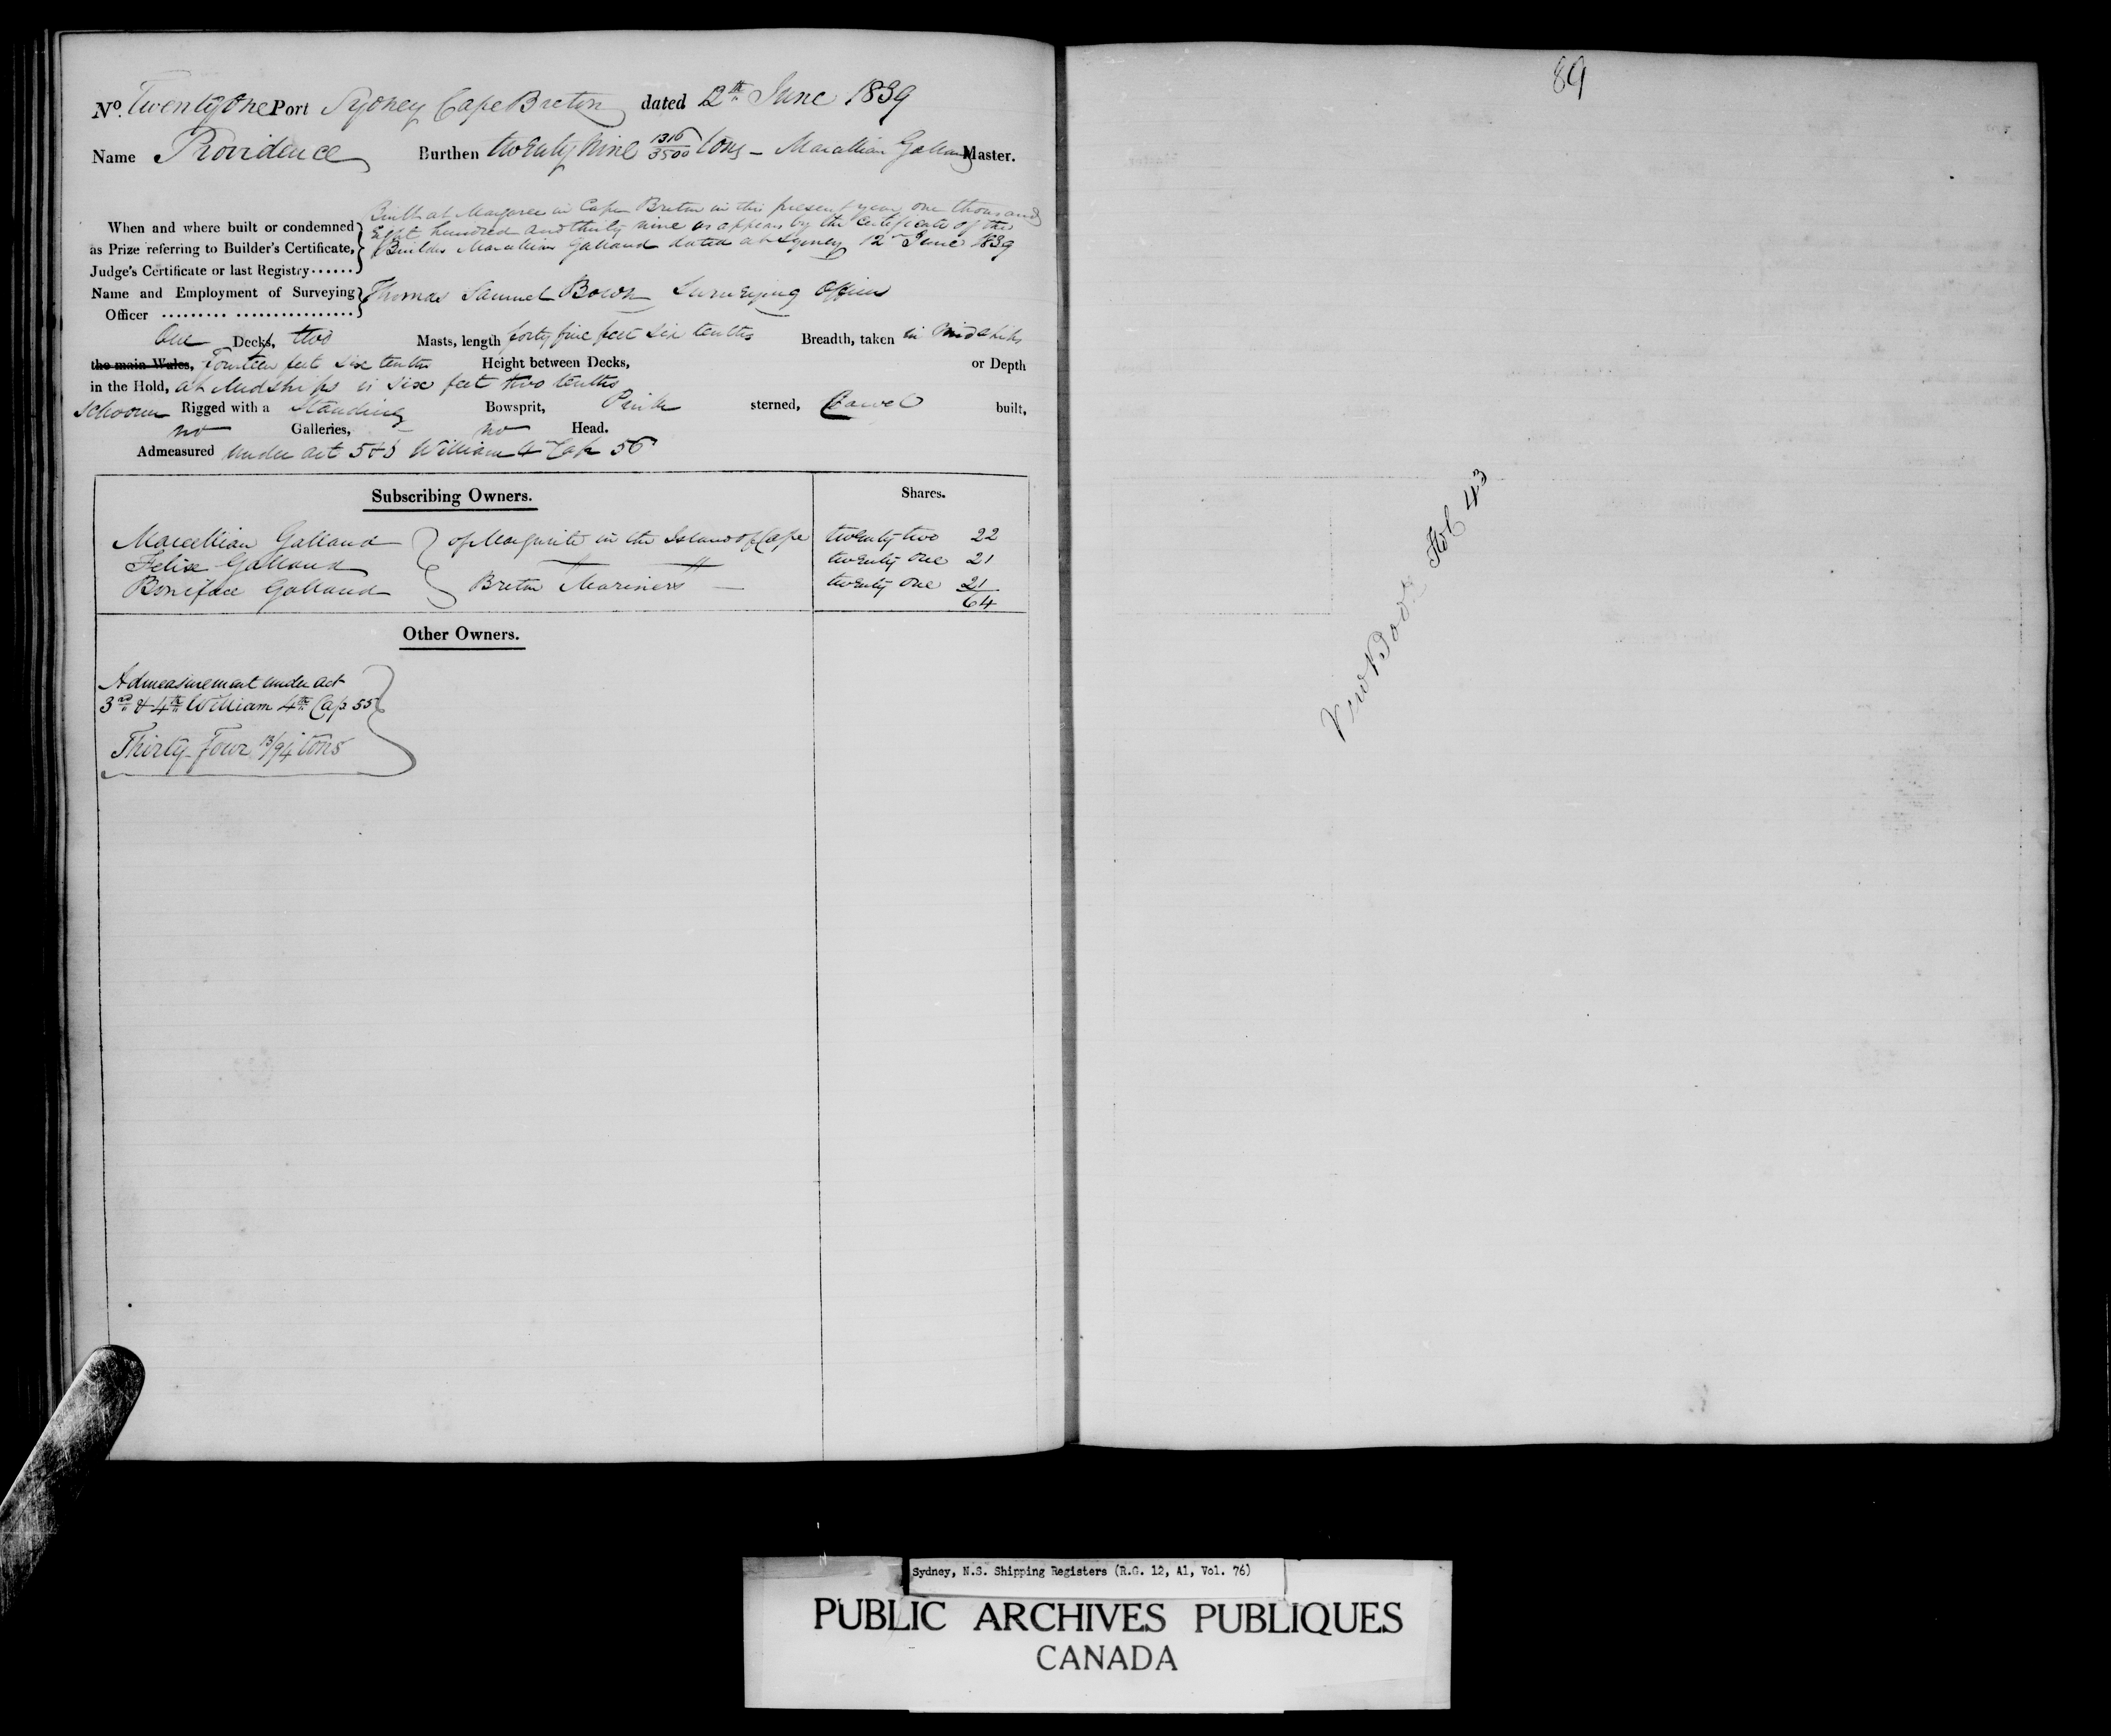 No. Twenty One Port Sydney Cape Breton dated 12th June 1839
Name Providence Burthen twenty nine 1316/3500 tons – Marcellian Galland Master.
When and where built or condemned as Prize referring to Builder's Certificate, Judge's Certificate or last Registry......
Built at Margaree in Cape Breton in this present year one thousand
Eight hundred and thirty nine as appears by the Certificate of the
Builder Marcellian Galland dated at Sydney 12th June 1839
Name and Employment of Surveying Officer ......... ................. Thomas Samuel Bown Surveying Officer
One Decks, two Masts, length forty five feet six tenths Breadth, taken in Midships
the main Wales, Fourteen feet six tenths Height between Decks, or Depth
in the Hold, at Midships is six feet two tenths
Schooner Rigged with a Standing Bowsprit, Pink sterned, Carvel built,
no Galleries, no Head.
Admeasured under act 5 & 6 William 4th Cap 56
Subscribing Owners. Shares.
Marcellian Galland of in the Island of Cape twenty two 22
Felix Galland twenty one 21
Boniface Galland Breton Mariners twenty one 21
64
Other Owners.
Admeasurement under act
3rd & 4th William 4th Cap 55
Thirty Four 13/94 tons
89
New Book Fol 43
Sydney, N.S. Shipping Registers (R.G. 12, A1, Vol. 76)
PUBLIC ARCHIVES PUBLIQUES
CANADA